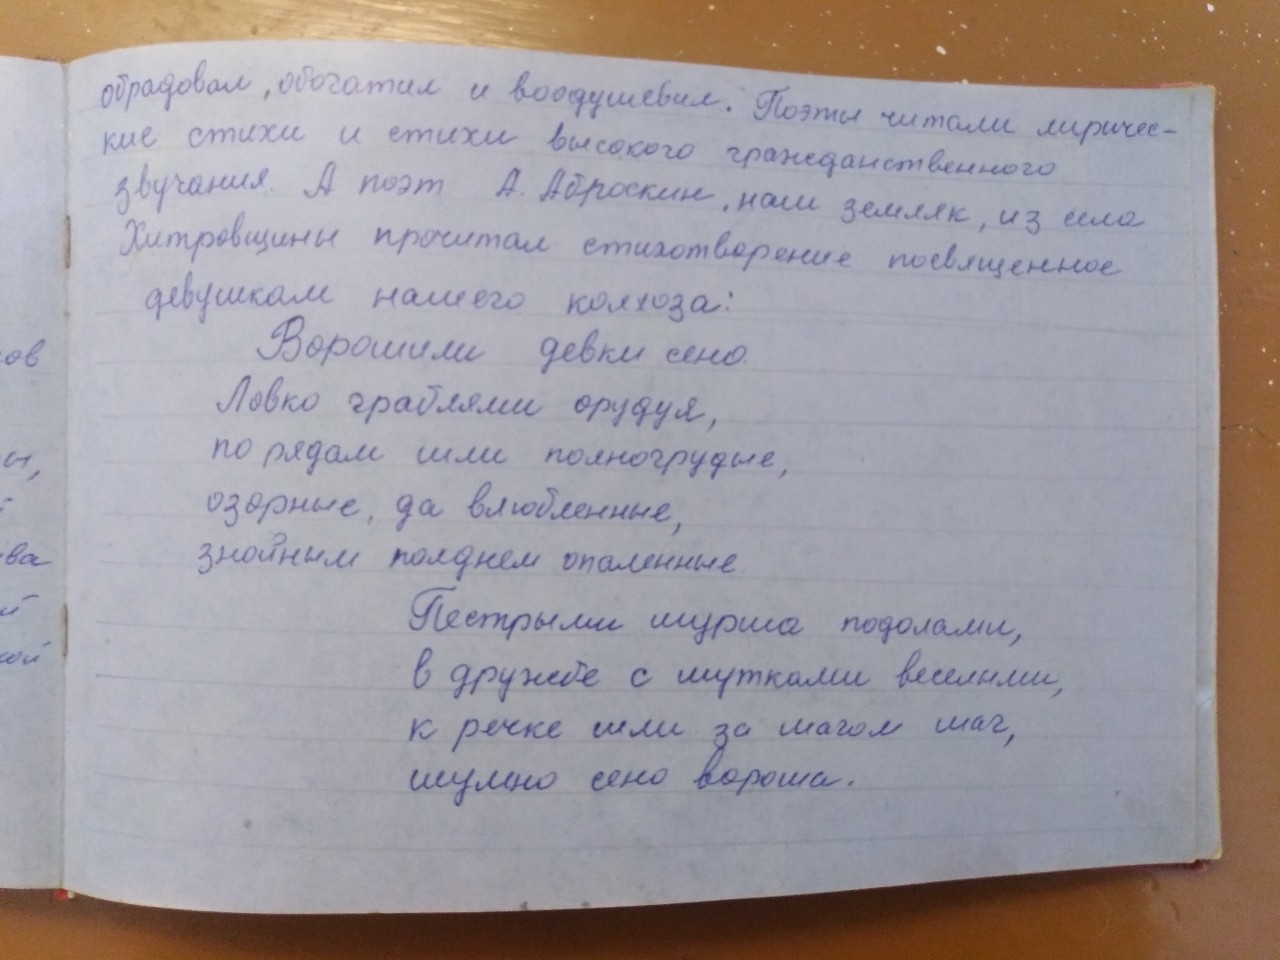 обрадовал, обогатил и воодушевил. Поэты читали лиричес-
кие стихи и стихи высокого гражданственного
звучания. А поэт А. Аброскин, наш земляк, из села
Хитровщины прочитал стихотворение посвященное
девушкам нашего колхоза:
Ворошили девки сено.
Ловко граблями орудуя,
по рядам шли полногрудые,
озорные, да влюбленные,
знойным полднем опаленные.
Пестрыми шурша подолами,
в дружбе с шутками веселыми,
к речке шли за шагом шаг,
шумно сено вороша.